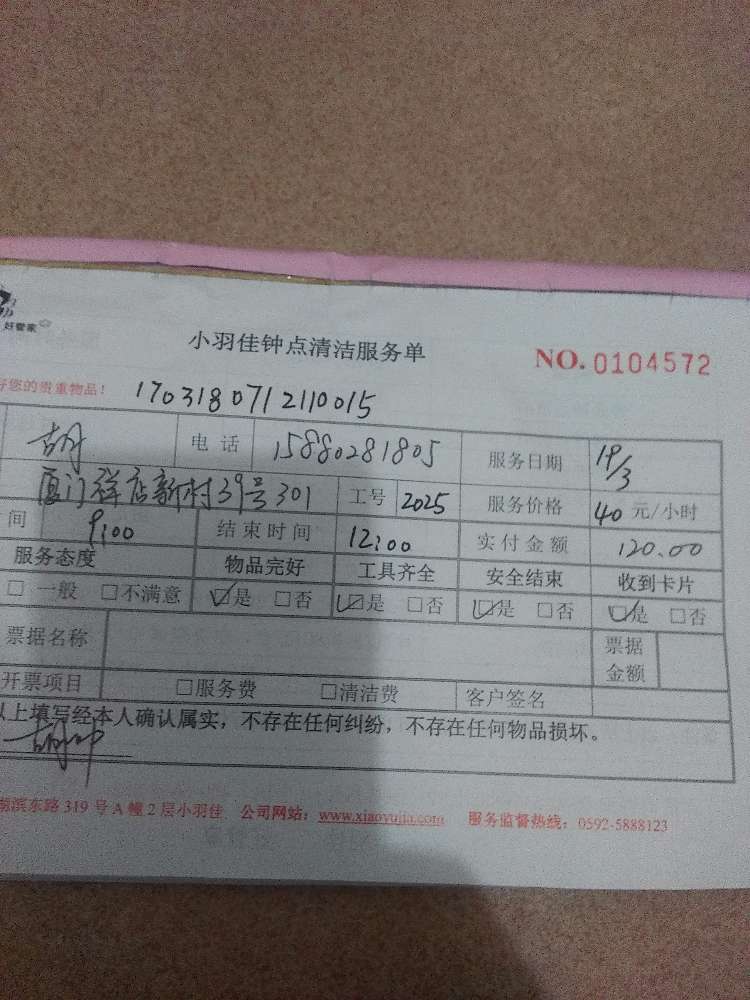 好管家
小羽佳钟点清洁服务单 NO. 0104572
好您的贵重物品! 1703180712110015
胡 电话 15880281805 服务日期 19/3
厦门祥店新村39号301 工号 2025 服务价格 40 元/小时
间 9:00 结束时间 12:00 实付金额 120.00
服务态度 物品完好 工具齐全 安全结束 收到卡片
□ 一般 □不满意 ☑是 □否 ☑是 □否 ☑是 □否 ☑是 □否
票据名称 票据金额
开票项目 □服务费 □清洁费 客户签名
以上填写经本人确认属实，不存在任何纠纷，不存在任何物品损坏。
滨东路319号A幢2层小羽佳 公司网站：www.xiaoyujia.com 服务监督热线：0592-5888123